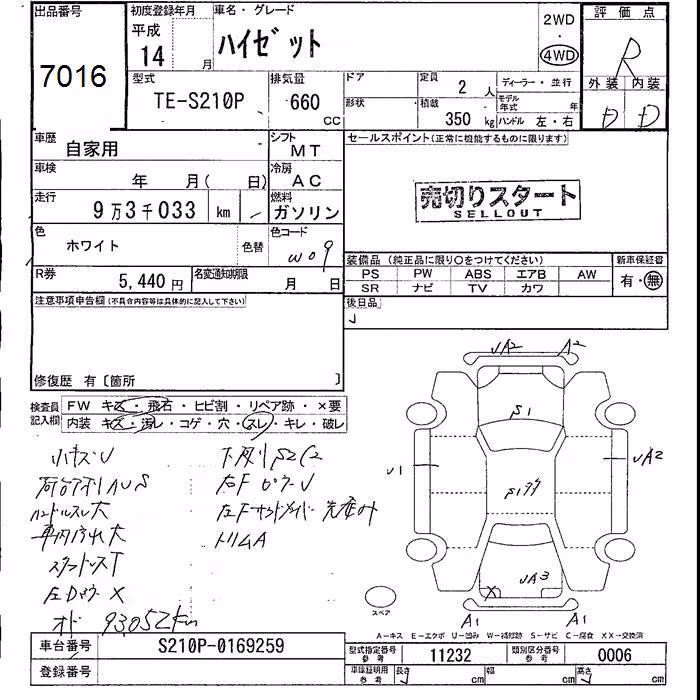 出品番号
7016
初度登録年月
平成
14 月
車名・グレード
ハイゼット
2WD
・
4WD
評価点
R
外装 内装
D D
型式
TE-S210P
排気量
660
CC
ドア
形状
定員
2 人
積載
350 kg
ディーラー・並行
モデル年式 年
ハンドル 左・右
車歴
自家用
シフト
MT
車検
年 月( 日)
冷房
AC
走行
9万3千033 km
燃料
ガソリン
色
ホワイト
色替
色コード
W09
R券
5,440円
名変通知期限
月 日
セールスポイント(正常に機能するものに限ります)
売切りスタート
SELLOUT
装備品(純正品に限り○をつけてください)
PS PW ABS エアB AW
SR ナビ TV カワ
新車保証書
有・無
後日品
注意事項申告欄(不具合内容等は具体的に記入して下さい)
修復歴 有〔箇所 〕
検査員記入欄
FW キズ・飛石・ヒビ割・リペア跡・×要
内装 キズ・汚レ・コゲ・穴・スレ・キレ・破レ
小キズU
ハンドルスレ大
車内汚れ大
左Dミラー X
オド 93052km
下廻りS2C2
トリムA
UA2 A2
S1
U1
UA2
UA3
X
A1 A1
スペア
A―キス E―エクボ U―凹み W―補修跡 S―サビ C―腐食 XX―交換済
車台番号
S210P-0169259
登録番号
型式指定番号
参考
11232
類別区分番号
参考
0006
車庫証明用
参考
長さ cm
幅 cm
高さ cm